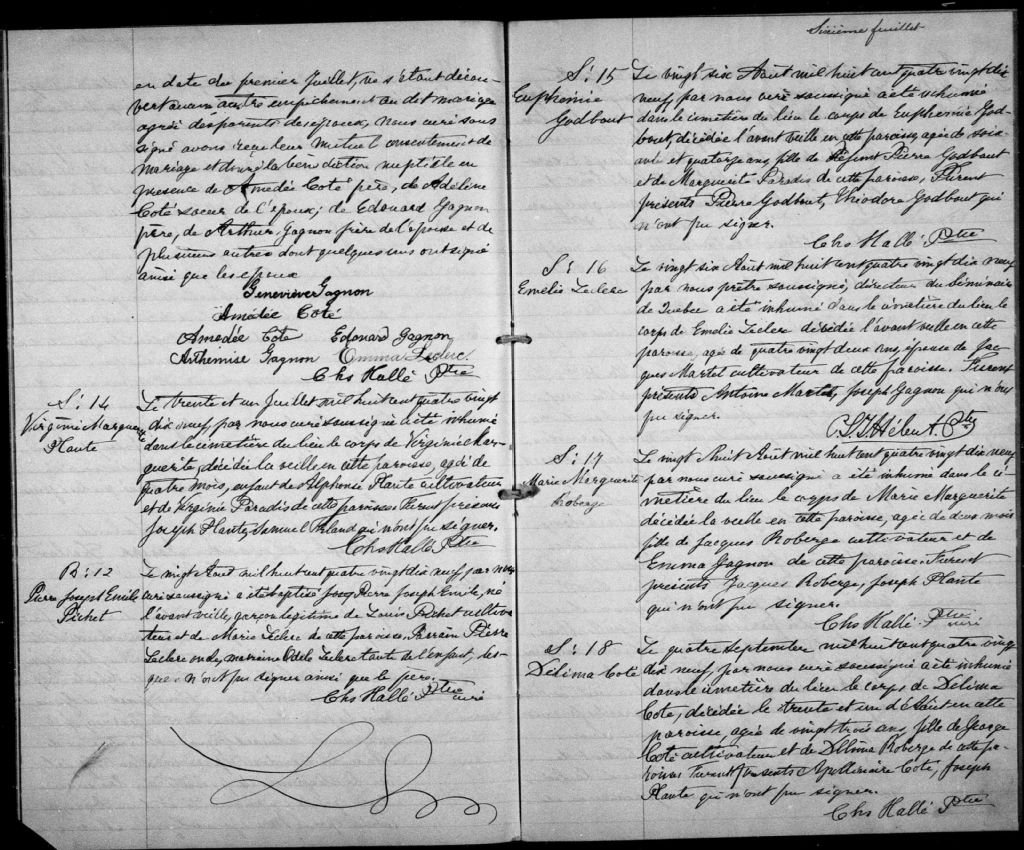 en date du premier Juillet, ne s'étant décou-
vert aucun autre empêchement au dit mariage
agréé des parents des époux, Nous curé sous
signé avons reçu leur mutuel consentement de
mariage et donné la bénédiction nuptiale en
présence de Amédée Coté père, de Adeline
Coté soeur de l'époux; de Edouard Gagnon
père, de Arthur Gagnon frère de l'épouse et de
plusieurs autres dont quelques uns ont signé
ainsi que les époux
Geneviève Gagnon
Amédée Coté
Amédée Cote Edouard Gagnon
Arthemise Gagnon Emma Leclerc
Chs Hallé Ptre
S: 14
Virginie Marguerite
Plante
Le trente et un Juillet mil huit cent quatre vingt
dix neuf, par nous curé soussigné a été inhumé
dans le cimetière du lieu le corps de Virginie Mar-
guerite, décédée la veille en cette paroisse, agée de
quatre mois, enfant de Alphonse Plante cultivateur
et de Virginie Paradis de cette paroisse Furent présents
Joseph Plante, Samuel qui n'ont pu signer.
Chs Hallé Ptre
B: 12
Pierre Joseph Emile
Pichet
Le vingt Aout mil huit cent quatre vingt dix neuf, par nous
curé soussigné a été baptisé Pierre Joseph Emile, né
l'avant veille, garçon légitime de Louis Pichet cultiva-
teur et de Marie Leclerc de cette paroisse, Parrain Pierre
Leclerc oncle, marraine Odele Leclerc tante de l'enfant, les-
quels n'ont pu signer ainsi que le père.
Chs Hallé Ptre
curé
Sixième feuillet
S: 15
Euphémie
Godbout
Le vingt six Août mil huit cent quatre vingt dix
neuf, par nous curé soussigné a été inhumé
dans le cimetière du lieu le corps de Euphémie God-
bout, décédée l'avant veille en cette paroisse, agée de soix-
ante et quatorze ans, fille de défunt Pierre Godbout
et de Marguerite Paradis de cette paroisse, Furent
présents Pierre Godbout, Théodore Godbout qui
n'ont pu signer.
Chs Hallé Ptre
S: 16
Emélie Leclerc
Le vingt six Août mil huit cent quatre vingt dix neuf
par nous prêtre soussigné, directeur du Séminaire
de Québec a été inhumé dans le cimetière du lieu le
corps de Emélie Leclerc décédée l'avant veille en cette
paroisse, agée de quatre vingt deux ans, épouse de Jac-
ques Martel cultivateur de cette paroisse. Furent
présents Antoine Martel, Joseph Gagnon qui n'ont
pu signer.
Hébert. Ptre
S: 17
Marie Marguerite
Roberge
Le vingt huit Août mil huit cent quatre vingt dix neuf
par nous curé soussigné a été inhumé dans le ci-
metière du lieu le corps de Marie Marguerite
décédée la veille en cette paroisse, agée de deux mois
fille de Jacques Roberge cultivateur et de
Emma Gagnon de cette paroisse. Furent
présents Jacques Roberge, Joseph Plante
qui n'ont pu signer.
Chs Hallé Ptre
curé
S: 18
Délima Coté
Le quatre Septembre mil huit cent quatre vingt
dix neuf, par nous curé soussigné a été inhumé
dans le cimetière du lieu le corps de Délima
Cote, décédée le trente et un d'Août en cette
paroisse, agée de vingt trois ans, fille de George
Coté cultivateur et de Délima Roberge de cette pa-
roisse Furent présents Apollinaire Coté, Joseph
Plante qui n'ont pu signer.
Chs Hallé Ptre